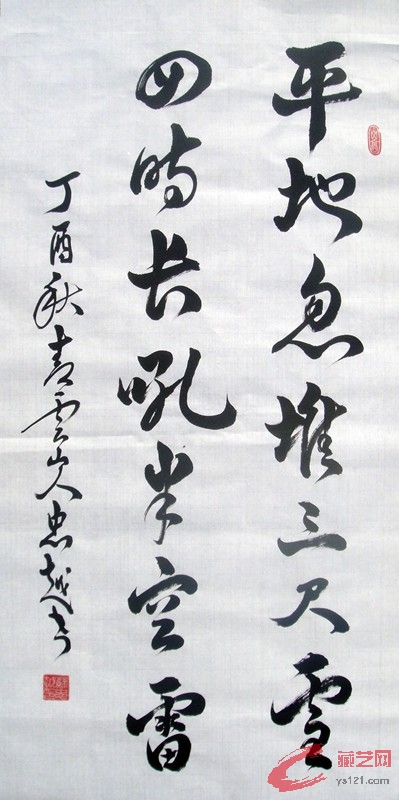 平地忽堆三尺雪
四時长吼半空雷
丁酉秋青云山人忠越书
藏艺网
ys121.com